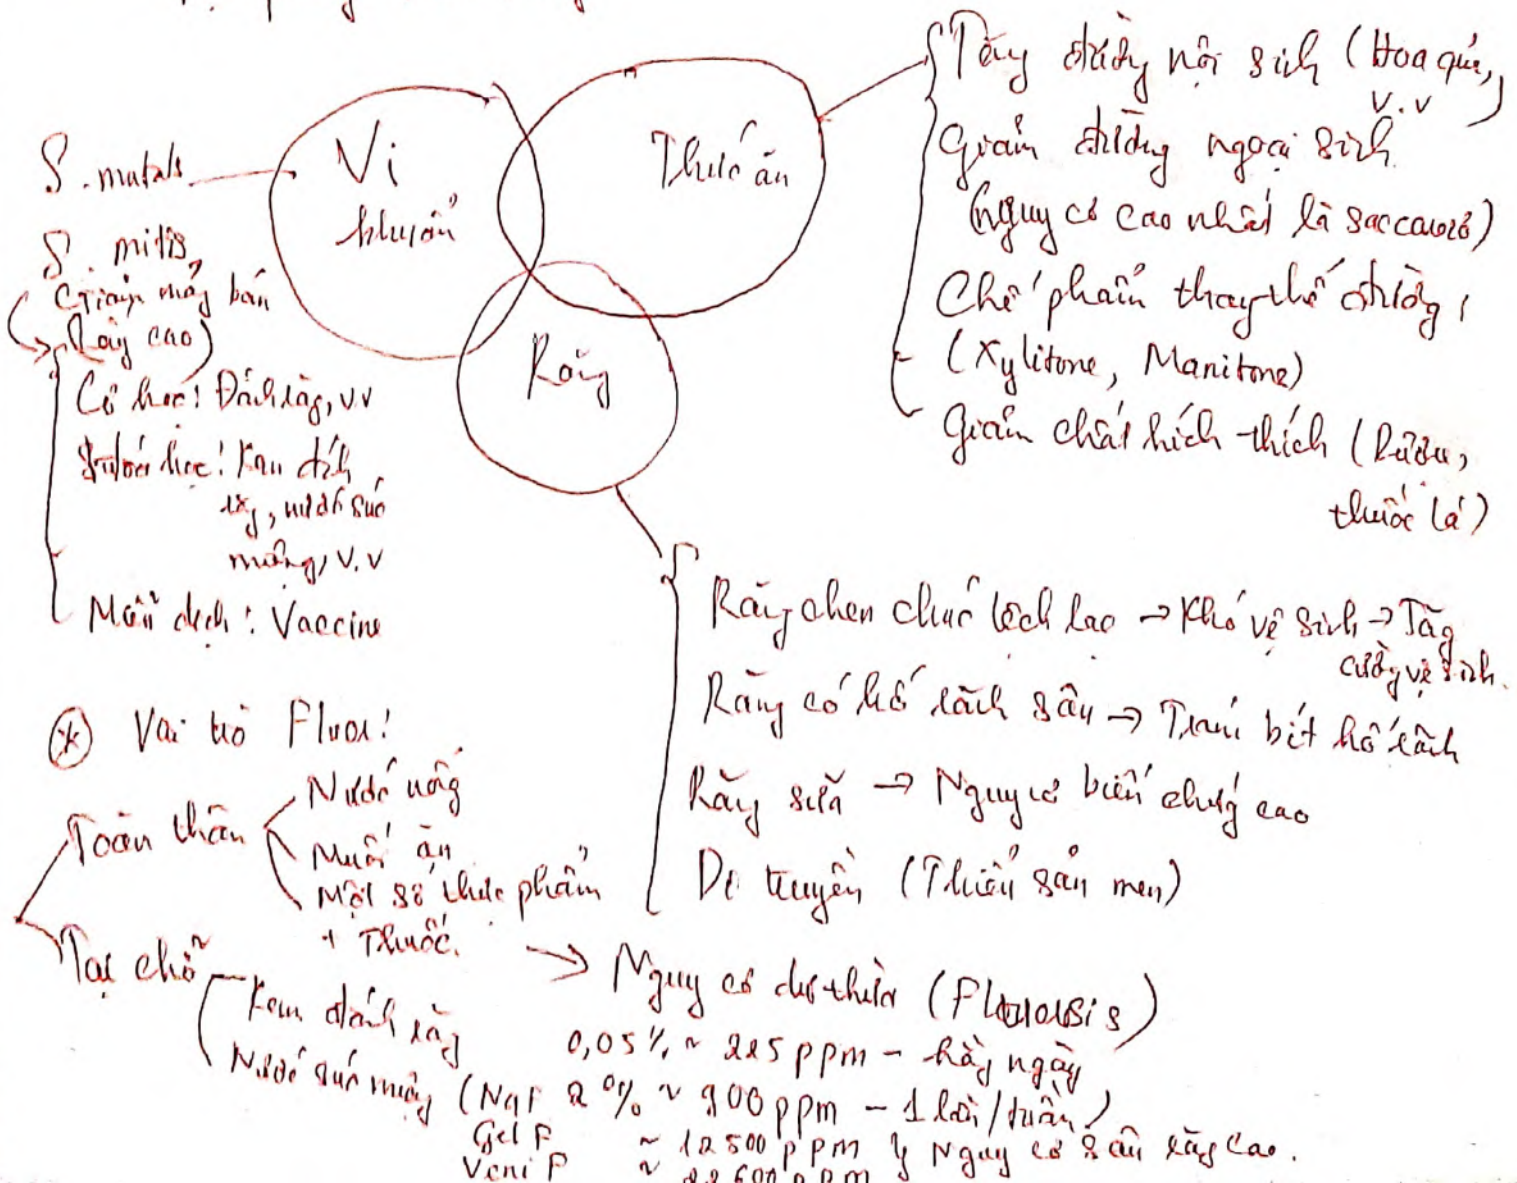 Vi
khuẩn
Thức ăn
Răng
S. mutals
S. mitis,
Giảm mảng bám
(Lấy cao)
Cơ học: Đánh răng, v.v
học: Kem đánh
răng, nước súc
miệng, v.v
Miễn dịch: Vaccine
Tăng đường nội sinh (Hoa quả,
v.v)
Giảm đường ngoại sinh
(nguy cơ cao nhất là saccarozo)
Chế phẩm thay thế đường,
(Xylitone, Manitone)
Giảm chất kích thích (Rượu,
thuốc lá)
Răng chen chúc lệch lạc → Khó vệ sinh → Tăng
cường vệ sinh.
Răng có hố rãnh sâu → Trám bít hố rãnh
Răng sữa → Nguy cơ biến chứng cao
Di truyền (Thiểu sản men)
* Vai trò Fluor:
Toàn thân
Nước uống
Muối ăn
Một số thực phẩm
+ Thuốc.
→ Nguy cơ dư thừa (Fluorosis)
Tại chỗ
Kem đánh răng
Nước súc miệng
0,05% ~ 225 ppm - hằng ngày
(NaF 2% ~ 900 ppm - 1 lần/tuần)
Gel F ~ 12500 ppm } Nguy cơ sâu răng cao.
Vecni F ~ 22600 ppm